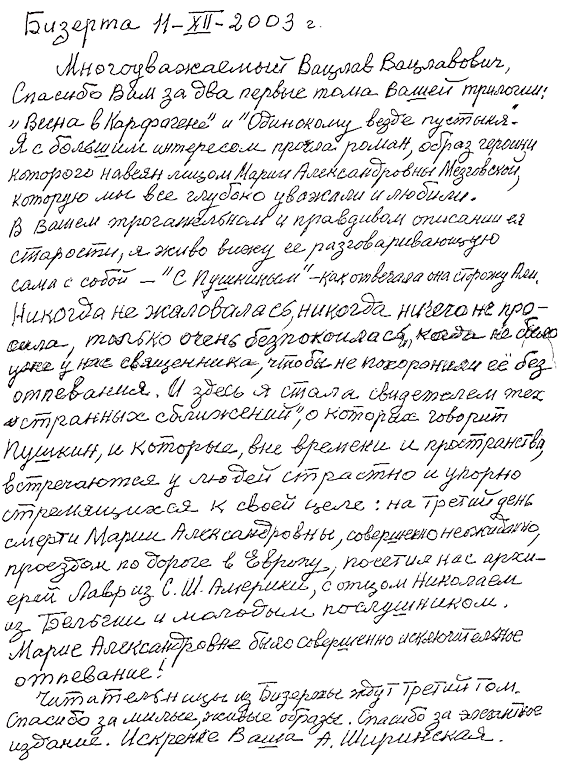 Бизерта 11-XII-2003 г.
Многоуважаемый Вацлав Вацлавович,
Спасибо Вам за два первые тома Вашей трилогии:
"Весна в Карфагене" и "Одинокому везде пустыня".
Я с большим интересом прочла роман, образ героини
которого навеян лицом Марии Александровны Мезговской,
которую мы все глубоко уважали и любили.
В Вашем трогательном и правдивом описании её
старости, я живо вижу её разговаривающую
сама с собой – "С Пушкиным" – как отвечала она сторожу Али.
Никогда не жаловалась, никогда ничего не про-
сила, только очень безпокоилась, когда не было
уже у нас священника, чтобы не похоронили её без
отпевания. И здесь я стала свидетелем тех
"странных сближений", о которых говорит
Пушкин, и которые, вне времени и пространства,
встречаются у людей страстно и упорно
стремящихся к своей целе: на третий день
смерти Марии Александровны, совершенно неожиданно,
проездом по дороге в Европу, посетил нас архи-
ерей Лавр из С.Ш. Америки, с отцом Николаем
из Бельгии и молодым послушником.
Марие Александровне было совершенно исключительное
отпевание!
Читательницы из Бизерты ждут третий том.
Спасибо за милые, живые образы. Спасибо за элегантное
издание. Искренне Ваша А. Ширинская.